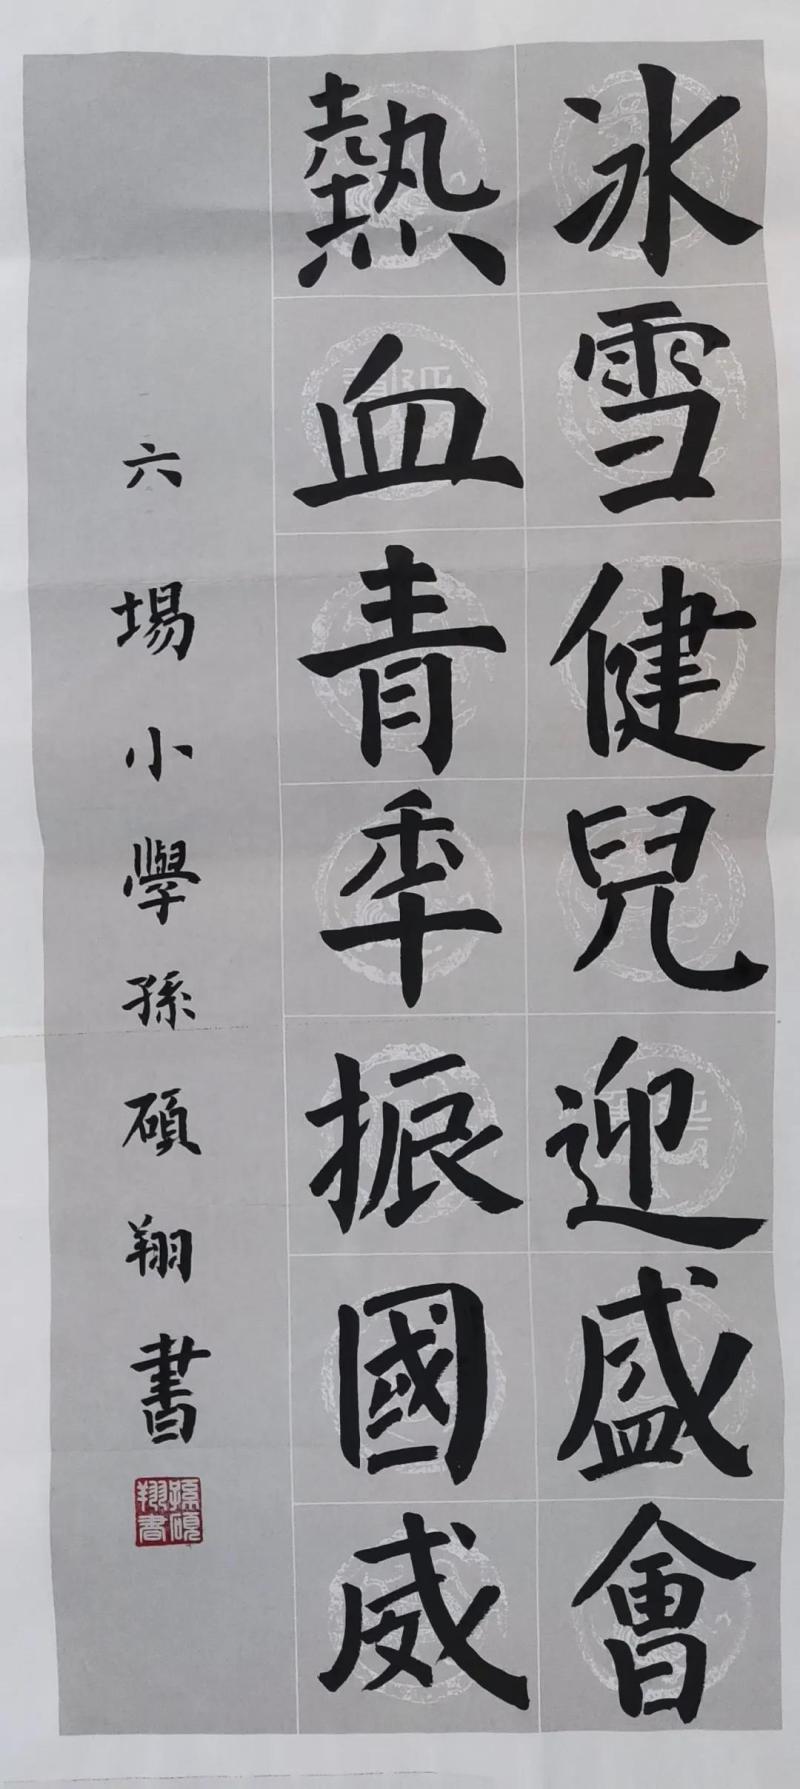 冰雪健兒迎盛會
熱血青年振國威
六場小學孫碩翔書
孫碩翔書